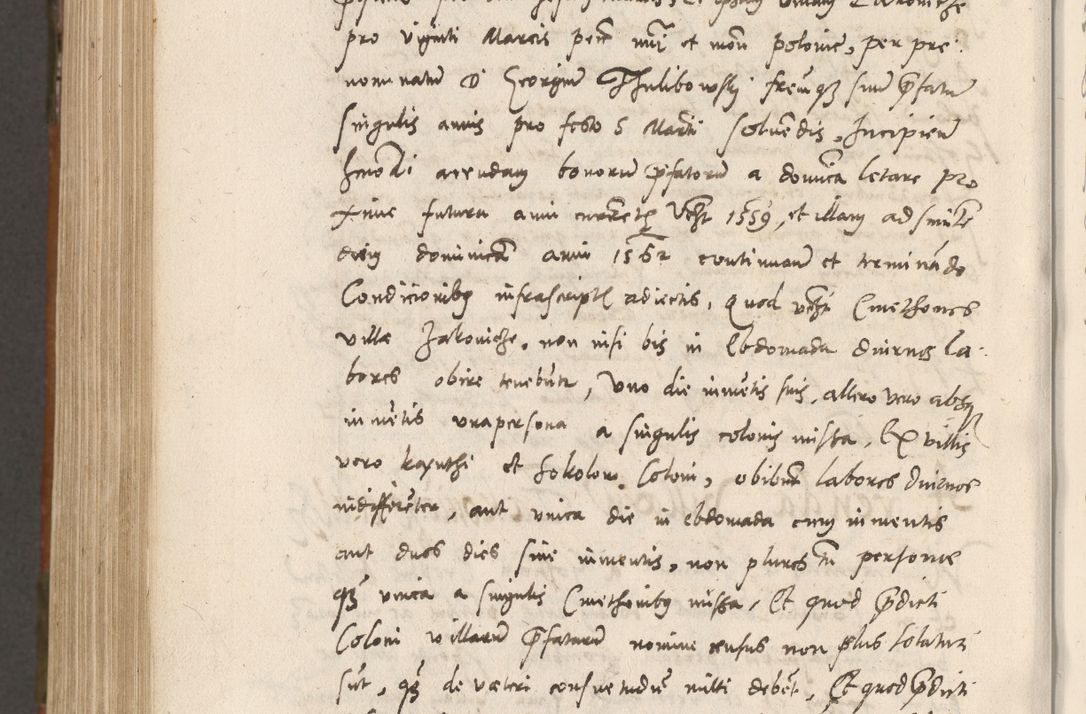 pro viginti Marcis pecte nui et mon polonie, per pre
nominatu D Georgiu Thulibowskj freq suu pfatu
singulis annis pro festo S Marti soluedis, Incipien
arendam bonoru pfatoru a domica letare pro
xime futura anni currete Vcht 1559, et illam ad simile
diem dominica anni 1562 continuan et terminado
Condicionibq infrascriptis adiectis, Quod vcht Cmethones
villae Jakoniche, non nisi bis in Ebdomada diurnos la
bores obire tenebutr, Uno die inmetis suis, altero vero absq
inmetis una persona a singulis colonis missa, Ex villis
vero kaputhi et Sokolow Coloni, obibut labores diurnos
indifferetr, aut unica die in ebdomada cum inmentis
aut duos dies sine inmentis, non plures tn persone
qz unica a singulis Cmethonibq missa, Et quod pdicti
Coloni villaru pfataru nomine census non plus soluturi
sut, qz de veteri consuetudie milti debet, Et quod pdicti